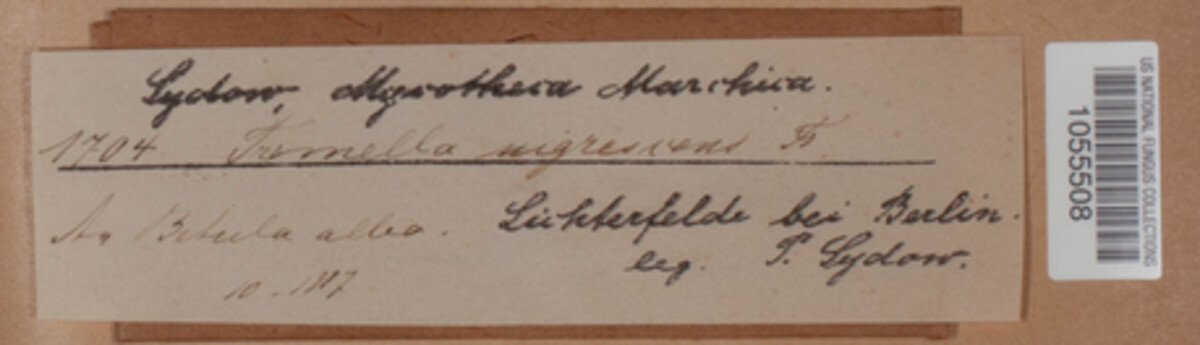 Sydow, Mycotheca Marchica.
1704 Tremella nigrescens Fr.
An Betula alba. Lichterfelde bei Berlin.
leg. P. Sydow.
10. 1887
US NATIONAL FUNGUS COLLECTIONS
1055508